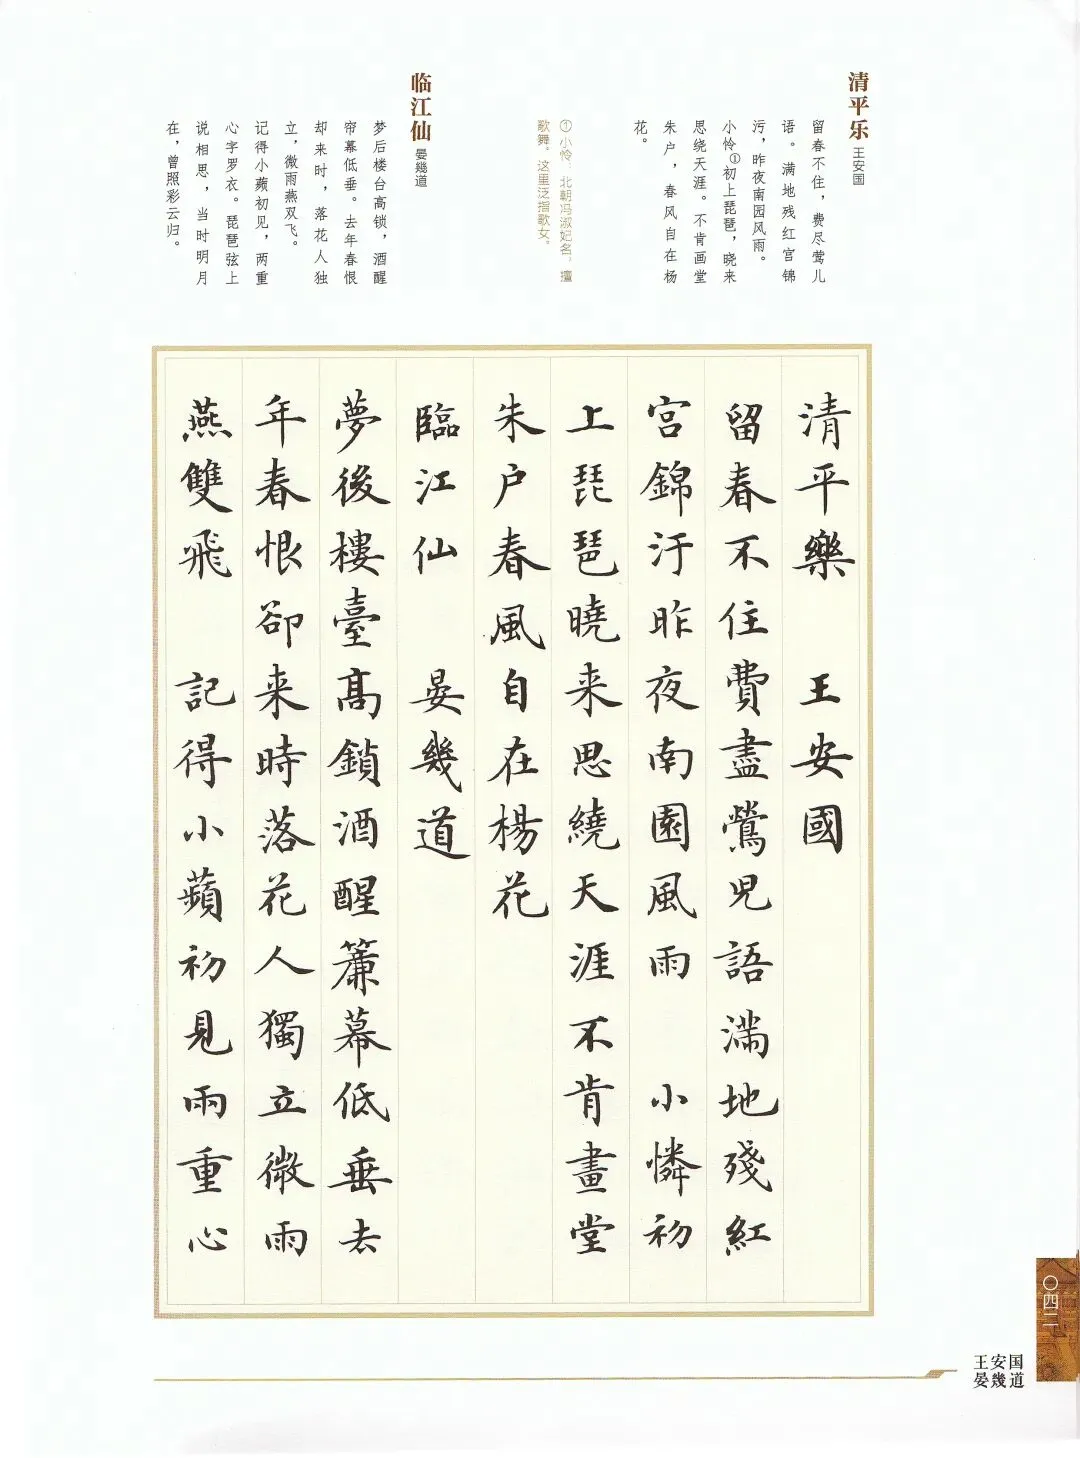 清平乐 王安国
留春不住，费尽莺儿
语。满地残红宫锦
污，昨夜南园风雨。
小怜①初上琵琶，晓来
思绕天涯。不肯画堂
朱户，春风自在杨
花。
①小怜：北朝冯淑妃名，擅
歌舞。这里泛指歌女。
临江仙 晏幾道
梦后楼台高锁，酒醒
帘幕低垂。去年春恨
却来时，落花人独
立，微雨燕双飞。
记得小蘋初见，两重
心字罗衣。琵琶弦上
说相思，当时明月
在，曾照彩云归。
清平樂 王安國
留春不住費盡鶯児語滿地殘紅
宮錦汙昨夜南園風雨 小憐初
上琵琶曉来思繞天涯不肯畫堂
朱户春風自在楊花
臨江仙 晏幾道
夢後樓臺髙鎖酒醒簾幕低垂去
年春恨卻来時落花人獨立微雨
燕雙飛 記得小蘋初見兩重心
〇四二
王安国
晏幾道